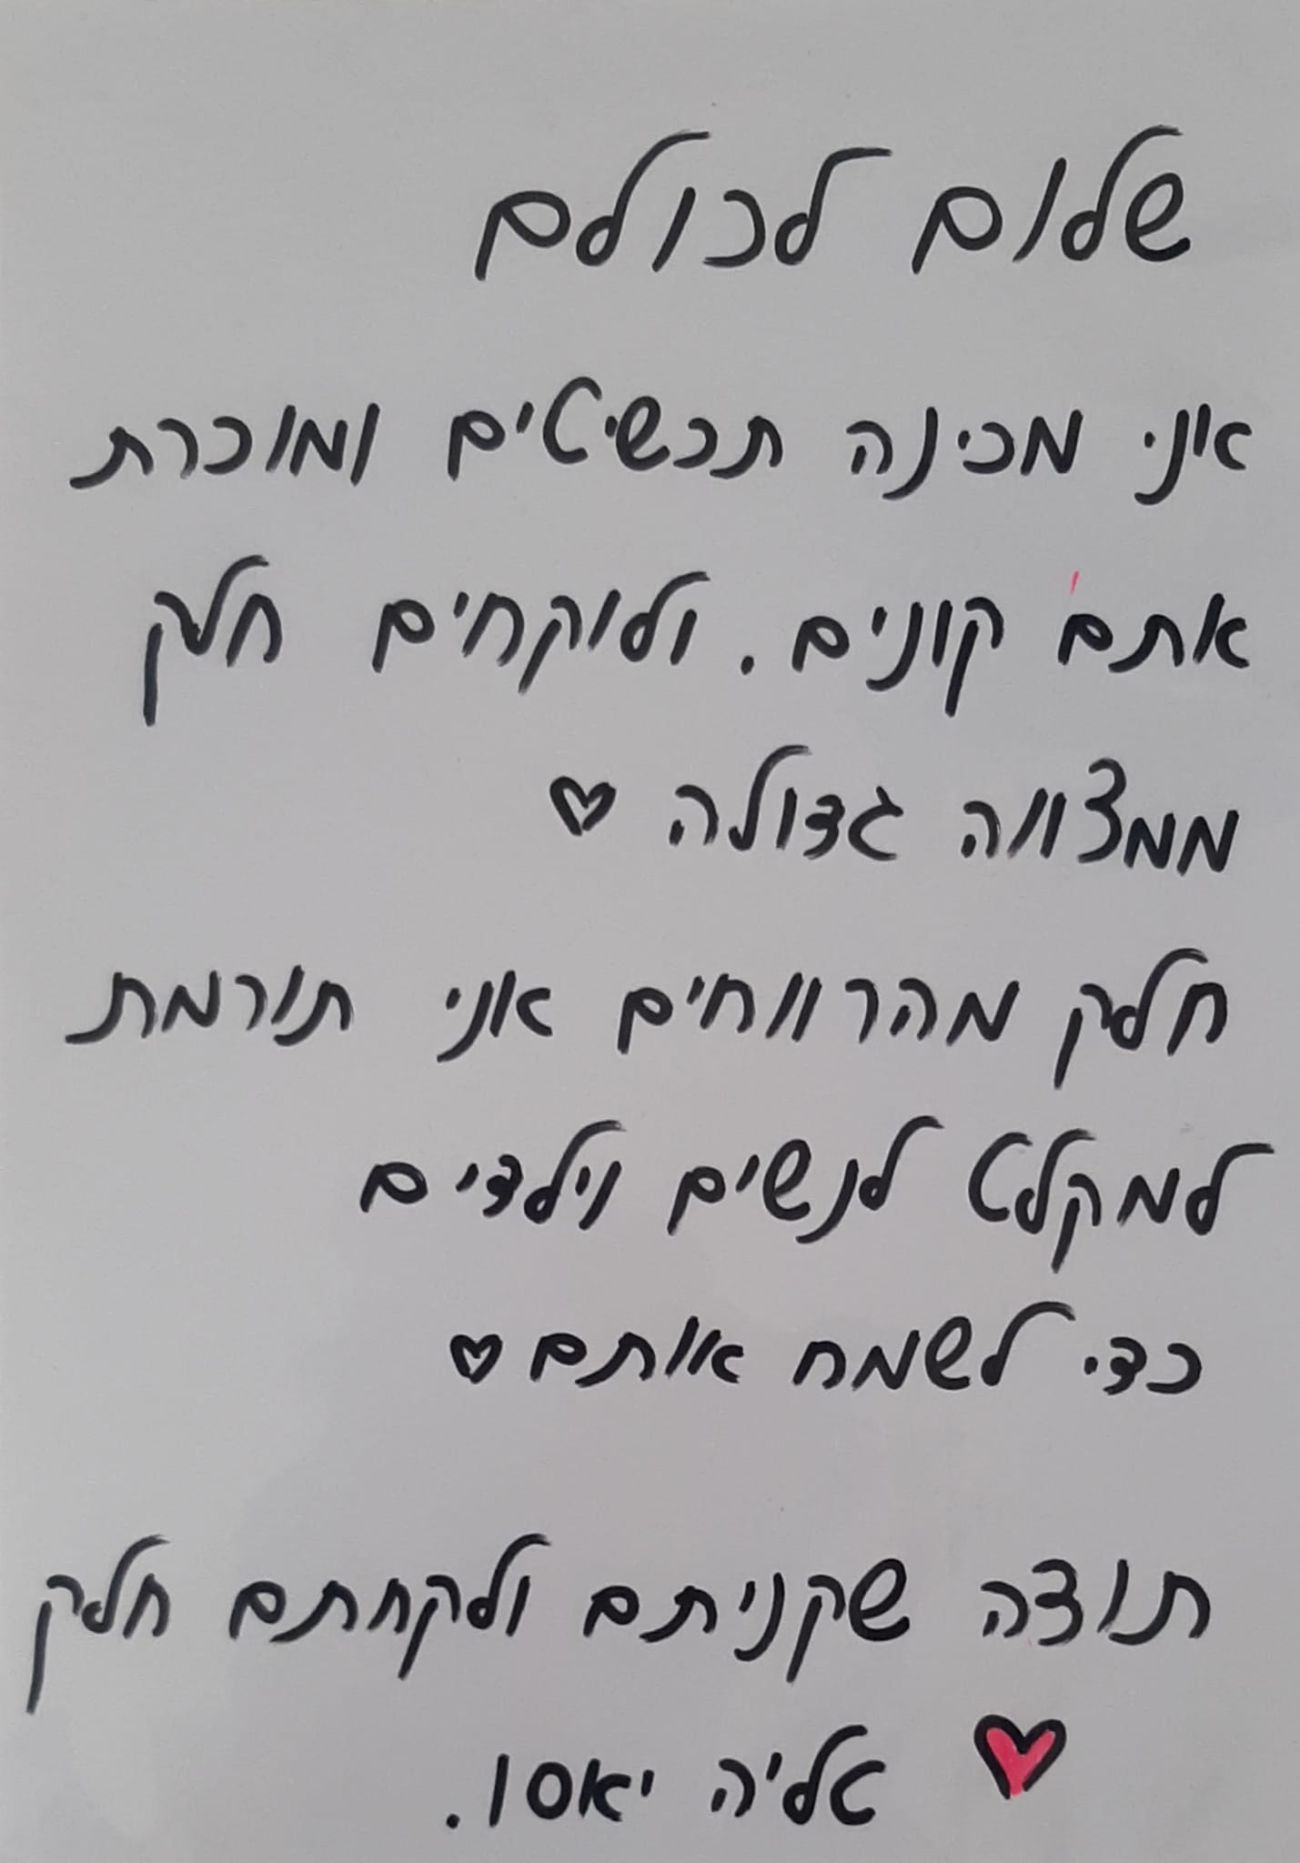 שלום לכולם
אני מכינה תכשיטים ומוכרת
אתם קונים. ולוקחים חלק
ממצווה גדולה ♡
חלק מהרווחים אני תורמת
למקלט לנשים וילדים
כדי לשמח אותם ♡
תודה שקניתם ולקחתם חלק
♥ אליה יאסו.